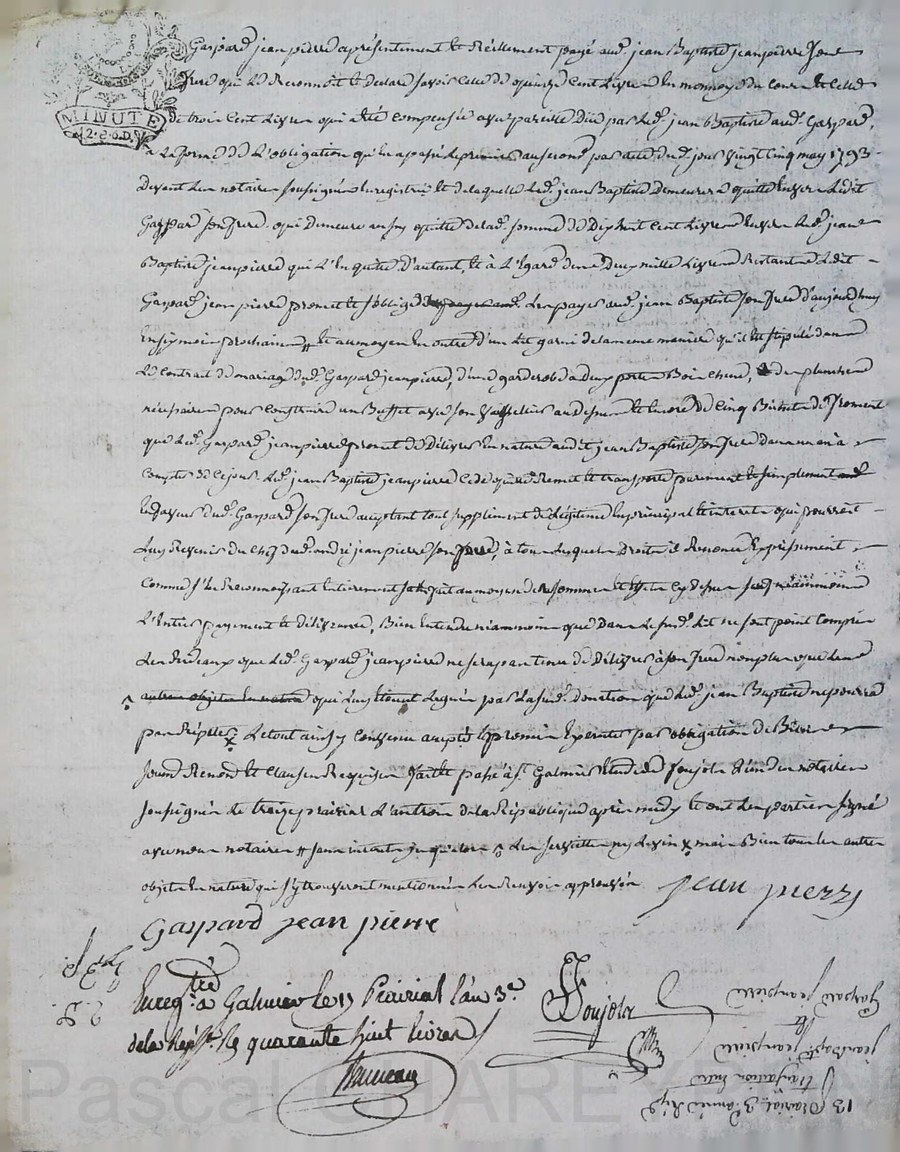 MINUTE
Gaspard jean pierre a présentement et Réellement payé aud. jean Baptiste jean pierre son
frere qui Le Reconnoit et declare savoir Celle de quinze Cent Livres En monnoye du cours et Celle
de trois Cent Livres qui a été compensée avec pareille düe par Led. jean Baptiste aud. Gaspard,
a La forme de L'obligation qu'il a passé dud. jour vingt Cinq may 1793
devant Les notaires soussignés Enregistrée et de laquelle Led. jean Baptiste demeurera quitte Envers Ledit
Gaspard son frere qui demeure quitte de lad. somme de Dixhuit Cent Livres Envers Led. jean
Baptiste jean pierre qui L'En quitte d'autant, Et à L'Egard des deux mille Livres Restantes Ledit
Gaspard jean pierre promet et s'oblige Les payer aud. jean Baptiste son frere d'aujourdhuy
En six mois prochains et au moyen En outre d'un Lit garni de la meme maniere qu'il Est stipulé dans
Le Contrat de mariage dud. Gaspard jean pierre, d'une garderobe a deux portes Bois Chene, des planches
nécessaires pour Construire un Buffet avec son Vaisselier au dessus et Encore de Cinq Bichets de froment
que Led. Gaspard jean pierre promet de Délivrer En nature audit jean Baptiste son frere dans un an à
Compter de Ce jour. Led. jean Baptiste jean pierre Cede quitte Remet et transporte purement et simplement
En faveur dud. Gaspard son frere acceptant tout supplément de Légitime En principal et interets qui pourroit
Luy Revenir du Chef dud. andré jean pierre son pere, à tous Lesquels Droits il Renonce Expressement
Comme s'En Reconnoissant Entierement satisfait au moyen des sommes et Effets Cy dessus
L'Entier payement et délivrance, Bien Entendu néanmoins que Dans Le susd. Lit ne sont point Compris
Les Rideaux que Led. Gaspard jean pierre ne sera pas tenu de Délivrer à son frere non plus que Les
autres objets En nature qui Luy Etoient Légués par La susd. donation que Led. jean Baptiste ne pourra
pas Répeter Le tout ainsy Convenu accepté promis Executer par obligation de Biens
Renond. et Clauses Requises fait et passé à St Galmier Etude de Soujols L'un des notaires
soussignés Le treize prairial L'an trois de la République après midy Et ont Les parties signé
avec nous notaires sans Les serviettes ny Levin mais Bien tous Les autres
objets En nature qui s'y trouveront mentionnés Les Renvois approuvés
jean pierre
Gaspard jean pierre
Enreg.tré à Galmier le 15 Prairial l'an 3e
de la Rép. R quarante huit livres
Soujols
13 Prairial 3e année Rép.
Transaction Entre
jean Bapt. jean pierre
&
Gaspard jean pierre
Pascal CHAREYRON